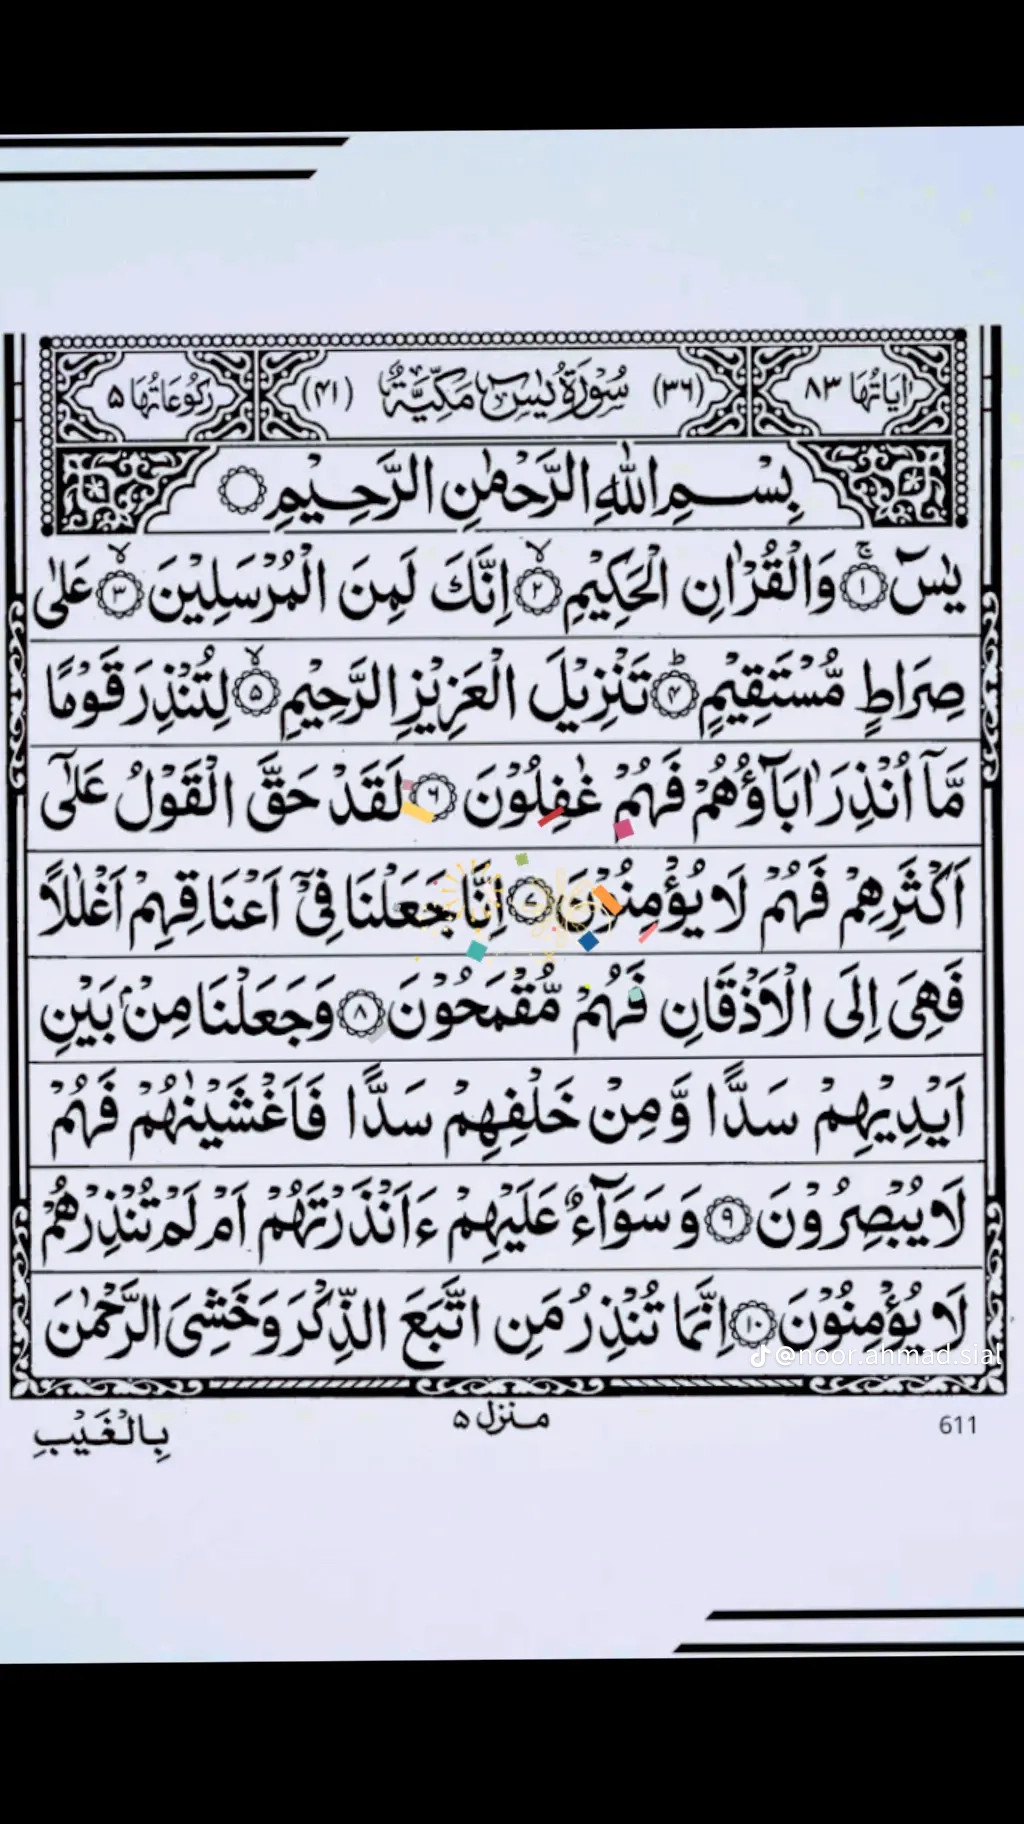 اٰيَاتُهَا ٨٣ (٣٦) سُوْرَةُ يٰسٓ مَكِّيَّةٌ (٤١) رُكُوْعَاتُهَا ٥
بِسْمِ اللّٰهِ الرَّحْمٰنِ الرَّحِيْمِ
يٰسٓ ۚ ١ وَالْقُرْاٰنِ الْحَكِيْمِ ۙ ٢ اِنَّكَ لَمِنَ الْمُرْسَلِيْنَ ۙ ٣ عَلٰى
صِرَاطٍ مُّسْتَقِيْمٍ ؕ ٤ تَنْزِيْلَ الْعَزِيْزِ الرَّحِيْمِ ۙ ٥ لِتُنْذِرَ قَوْمًا
مَّاۤ اُنْذِرَ اٰبَآؤُهُمْ فَهُمْ غٰفِلُوْنَ ٦ لَقَدْ حَقَّ الْقَوْلُ عَلٰۤى
اَكْثَرِهِمْ فَهُمْ لَا يُؤْمِنُوْنَ ٧ اِنَّا جَعَلْنَا فِىْۤ اَعْنَاقِهِمْ اَغْلٰلًا
فَهِىَ اِلَى الْاَذْقَانِ فَهُمْ مُّقْمَحُوْنَ ٨ وَجَعَلْنَا مِنْۢ بَيْنِ
اَيْدِيْهِمْ سَدًّا وَّمِنْ خَلْفِهِمْ سَدًّا فَاَغْشَيْنٰهُمْ فَهُمْ
لَا يُبْصِرُوْنَ ٩ وَسَوَآءٌ عَلَيْهِمْ ءَاَنْذَرْتَهُمْ اَمْ لَمْ تُنْذِرْهُمْ
لَا يُؤْمِنُوْنَ ١٠ اِنَّمَا تُنْذِرُ مَنِ اتَّبَعَ الذِّكْرَ وَخَشِىَ الرَّحْمٰنَ
@noor.ahmad.sial
611 منزل ٥ بِالْغَيْبِ